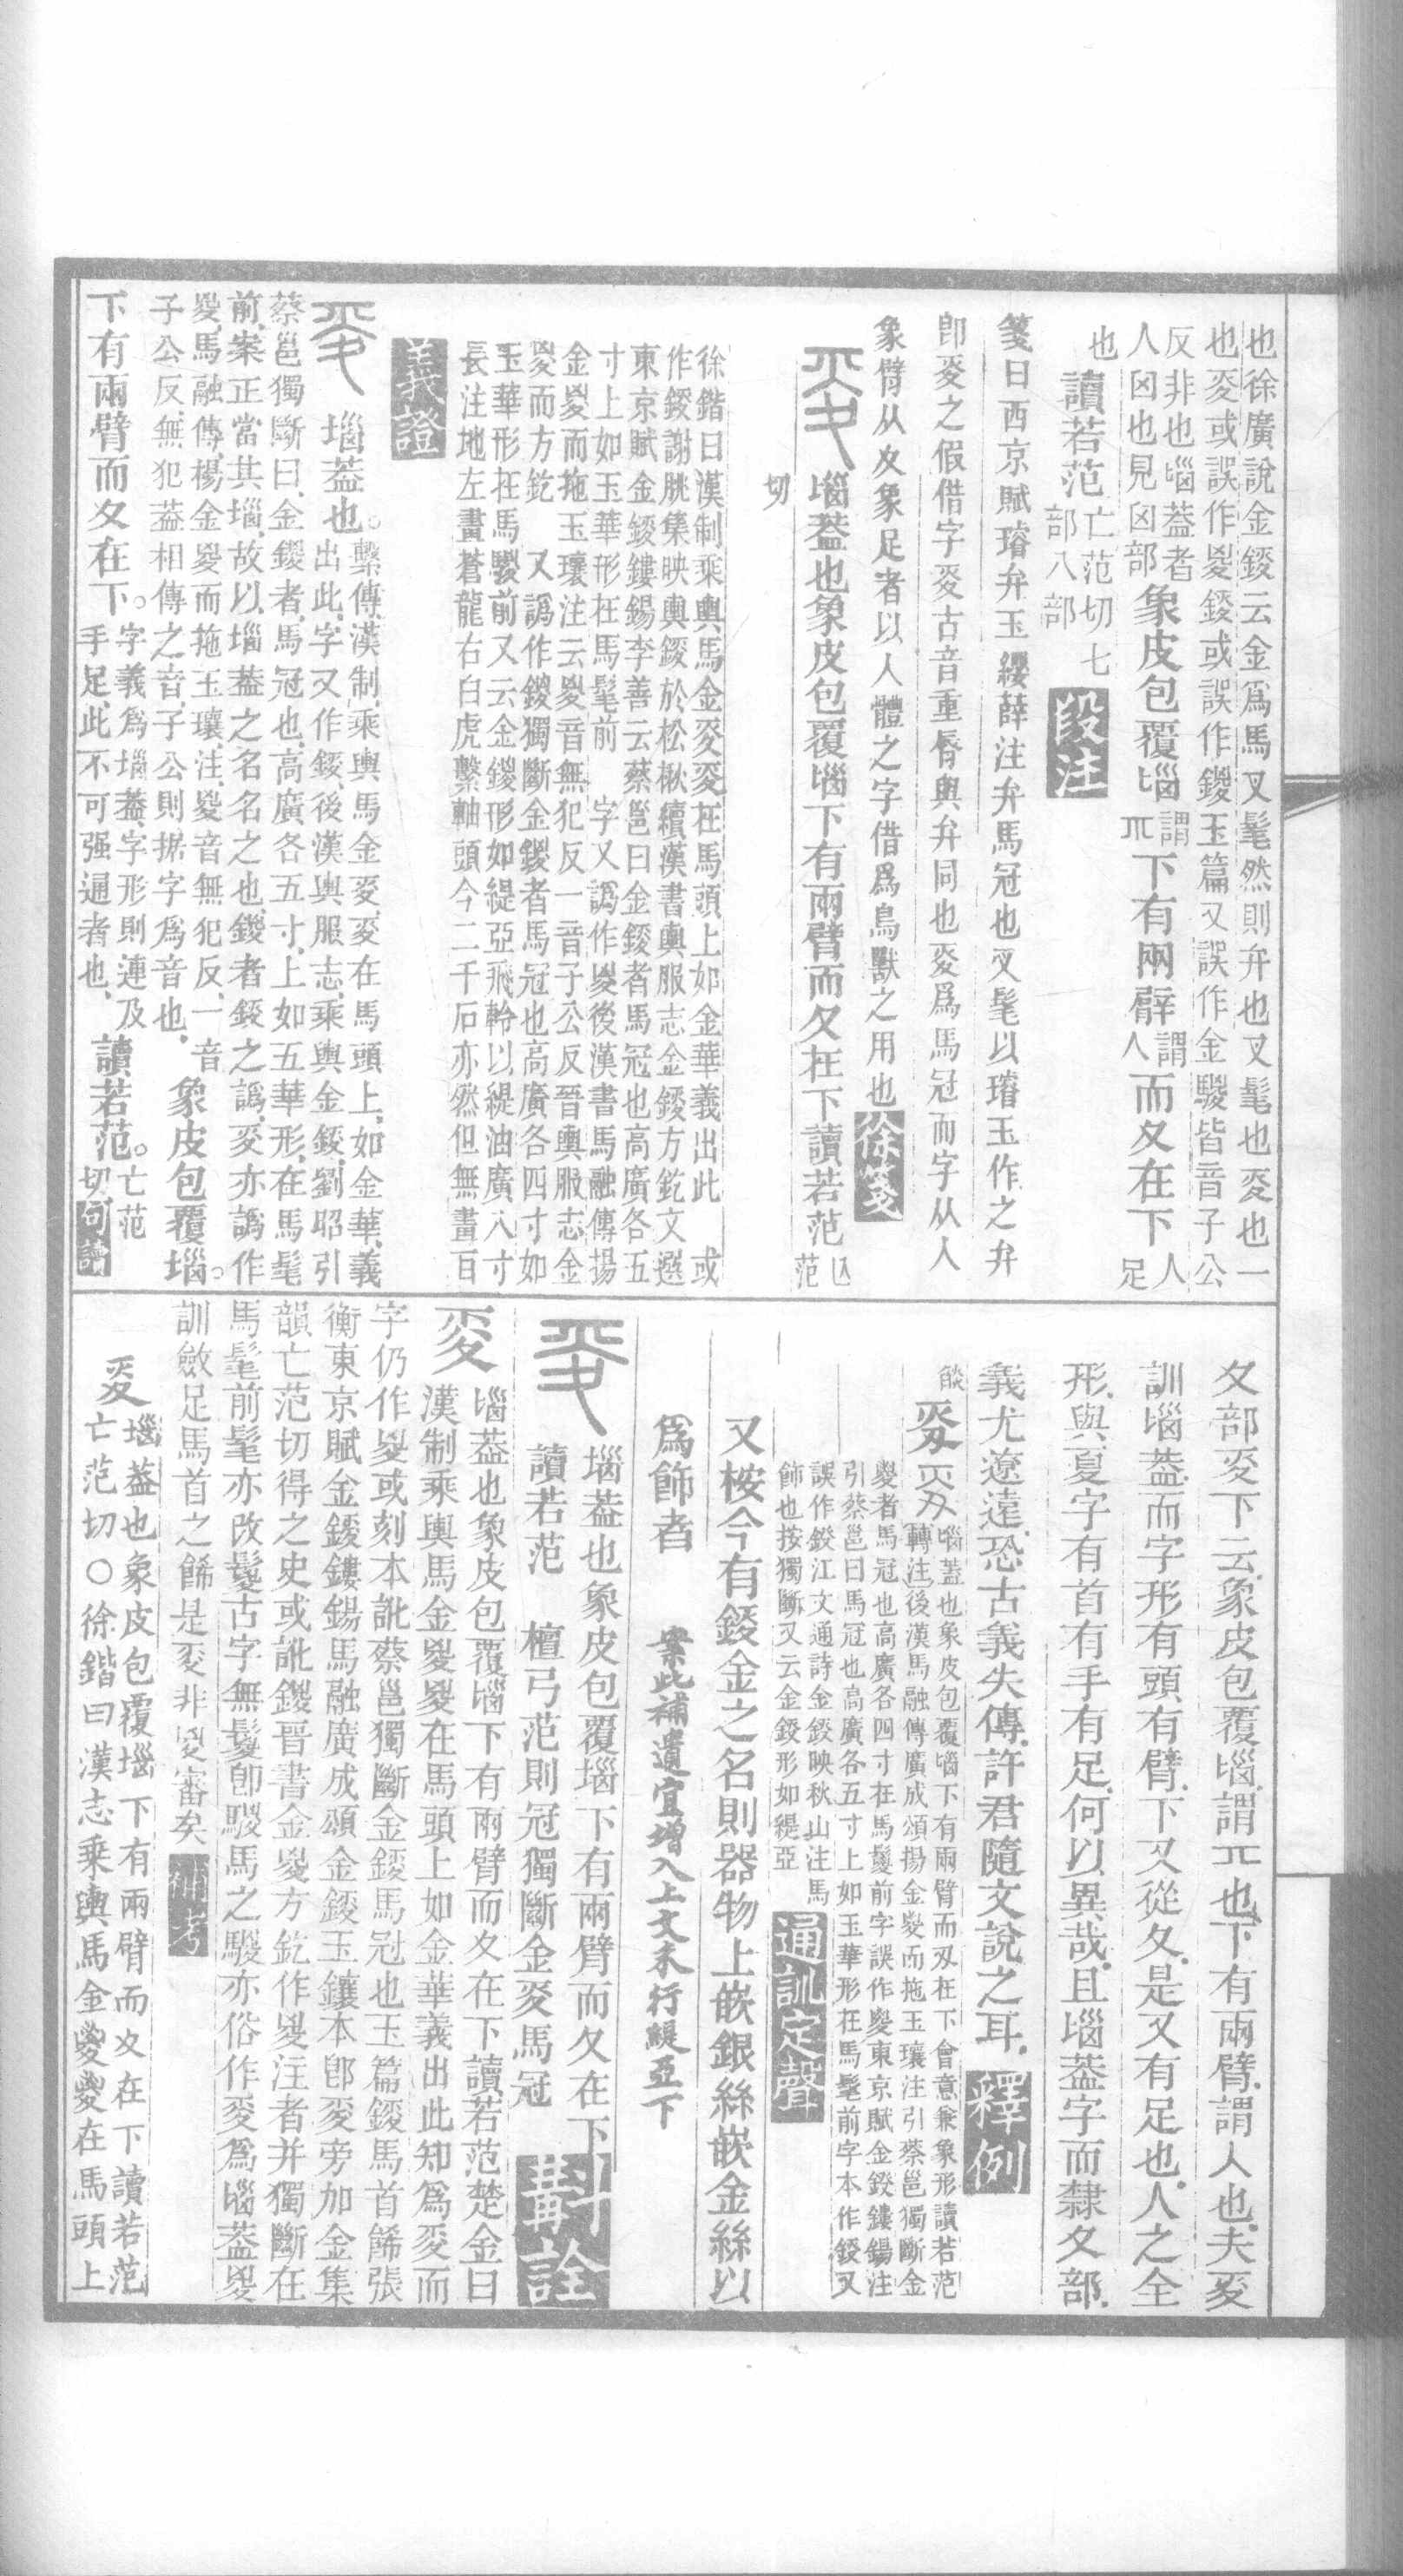 也徐廣說金鋄云金爲馬叉髦然則弁也叉髦也㚇也一
也㚇或誤作㚇鋄或誤作鍐玉篇又誤作金騣皆音子公
反非也𡿺葢者
人囟也見囟部
象皮包覆𡿺
謂
丌
下有网臂
謂
人
而夊在下
人
足
也
讀若范
亡范切七
部八部
段注
箋曰西京賦璿弁玉纓薛注弁馬冠也叉髦以璿玉作之弁
卽㚇之假借字㚇古音重脣與弁同也㚇爲馬冠而字从人
象臂从夊象足者以人體之字借爲鳥獸之用也
徐箋
𡿺葢也象皮包覆𡿺下有兩臂而夊在下讀若范
亾
范
切
徐鍇曰漢制乘輿馬金㚇㚇在馬頭上如金華義出此　或
作鋄謝脁集映輿鋄於松楸續漢書輿服志金鋄方釳文選
東京賦金鋄鏤鍚李善云蔡邕曰金鋄者馬冠也高廣各五
寸上如玉華形在馬髦前　字又譌作㚇後漢書馬融傳揚
金㚇而拖玉瓖注云㚇音無犯反一音子公反晉輿服志金
㚇而方釳　又譌作鍐獨斷金鍐者馬冠也高廣各四寸如
玉華形在馬騣前又云金鍐形如緹亞飛軨以緹油廣八寸
長注地左畫蒼龍右白虎繫軸頭今二千石亦然但無畫
義證
𡿺葢也。
繫傳漢制乘輿馬金㚇㚇在馬頭上如金華義
出此字又作鋄後漢輿服志乘輿金鋄劉昭引
蔡邕獨斷曰金鍐者馬冠也高廣各五寸上如五華形在馬髦
前案正當其𡿺故以𡿺葢之名名之也鍐者鋄之譌㚇亦譌作
㚇馬融傳揚金㚇而拖玉瓖注㚇音無犯反一音
子公反無犯葢相傳之音子公則據字爲音也
象皮包覆𡿺。
下有兩臂而夊在下。
字義爲𡿺葢字形則連及
手足此不可强通者也
讀若范。
亡范
切
句讀
夊部㚇下云象皮包覆𡿺謂丌也下有兩臂謂人也夫㚇
訓𡿺葢而字形有頭有臂下又從夊是又有足也人之全
形與夏字有首有手有足何以異哉且𡿺葢字而隸夊部
義尤遼遠恐古義失傳許君隨文說之耳
釋例
𡿺葢也象皮包覆𡿺下有兩臂而夊在下會意兼象形讀若范
轉注後漢馬融傳廣成頌揚金㚇而拖玉瓖注引蔡邕獨斷金
㚇者馬冠也高廣各四寸在馬鬉前字誤作㚇東京賦金鋄鏤鍚注
引蔡邕曰馬冠也高廣各五寸上如玉華形在馬髦前字本作鋄又
誤作鋄江文通詩金鋄映秋山注馬
飾也按獨斷又云金鋄形如緹亞
通訓定聲
又桉今有鋄金之名則器物上嵌銀絲嵌金絲以
爲飾者
案此補遺宜增入上文末行緹亞下
𡿺葢也象皮包覆𡿺下有兩臂而夊在下
讀若范　檀弓范則冠獨斷金㚇馬冠
斠詮
㚇
𡿺葢也象皮包覆𡿺下有兩臂而夊在下讀若范楚金曰
漢制乘輿馬金㚇㚇在馬頭上如金華義出此知爲㚇而
字仍作㚇或刻本訛蔡邕獨斷金鋄馬冠也玉篇鋄馬首餙張
衡東京賦金鋄鏤鍚馬融廣成頌金鋄玉鑲本卽㚇旁加金集
韻亡范切得之史或訛鍐晉書金㚇方釳作㚇注者并獨斷在
馬髦前髦亦改鬉古字無鬉卽騣馬之騣亦俗作㚇爲𡿺葢㚇
訓斂足馬首之餙是㚇非㚇審矣
㚇
𡿺葢也象皮包覆𡿺下有兩臂而夊在下讀若范
亡范切〇徐鍇曰漢志乘輿馬金㚇㚇在馬頭上